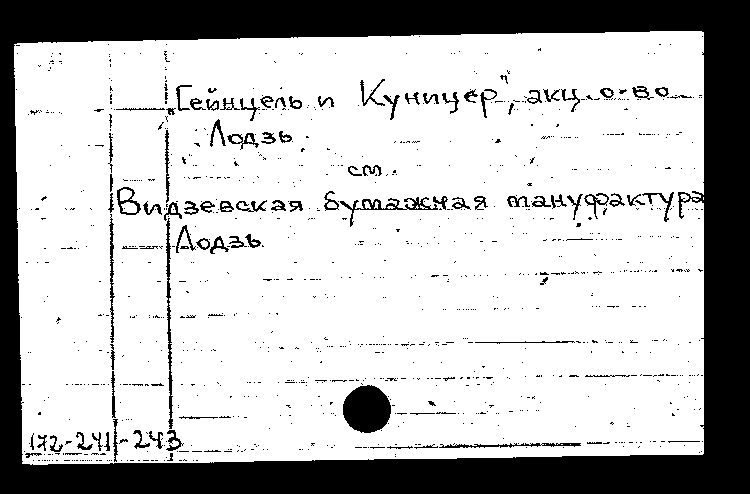 „Гейнцель и Куницер", акц. о-во
Лодзь
см.
Видзевская бумажная мануфактура
Лодзь
172-241-243